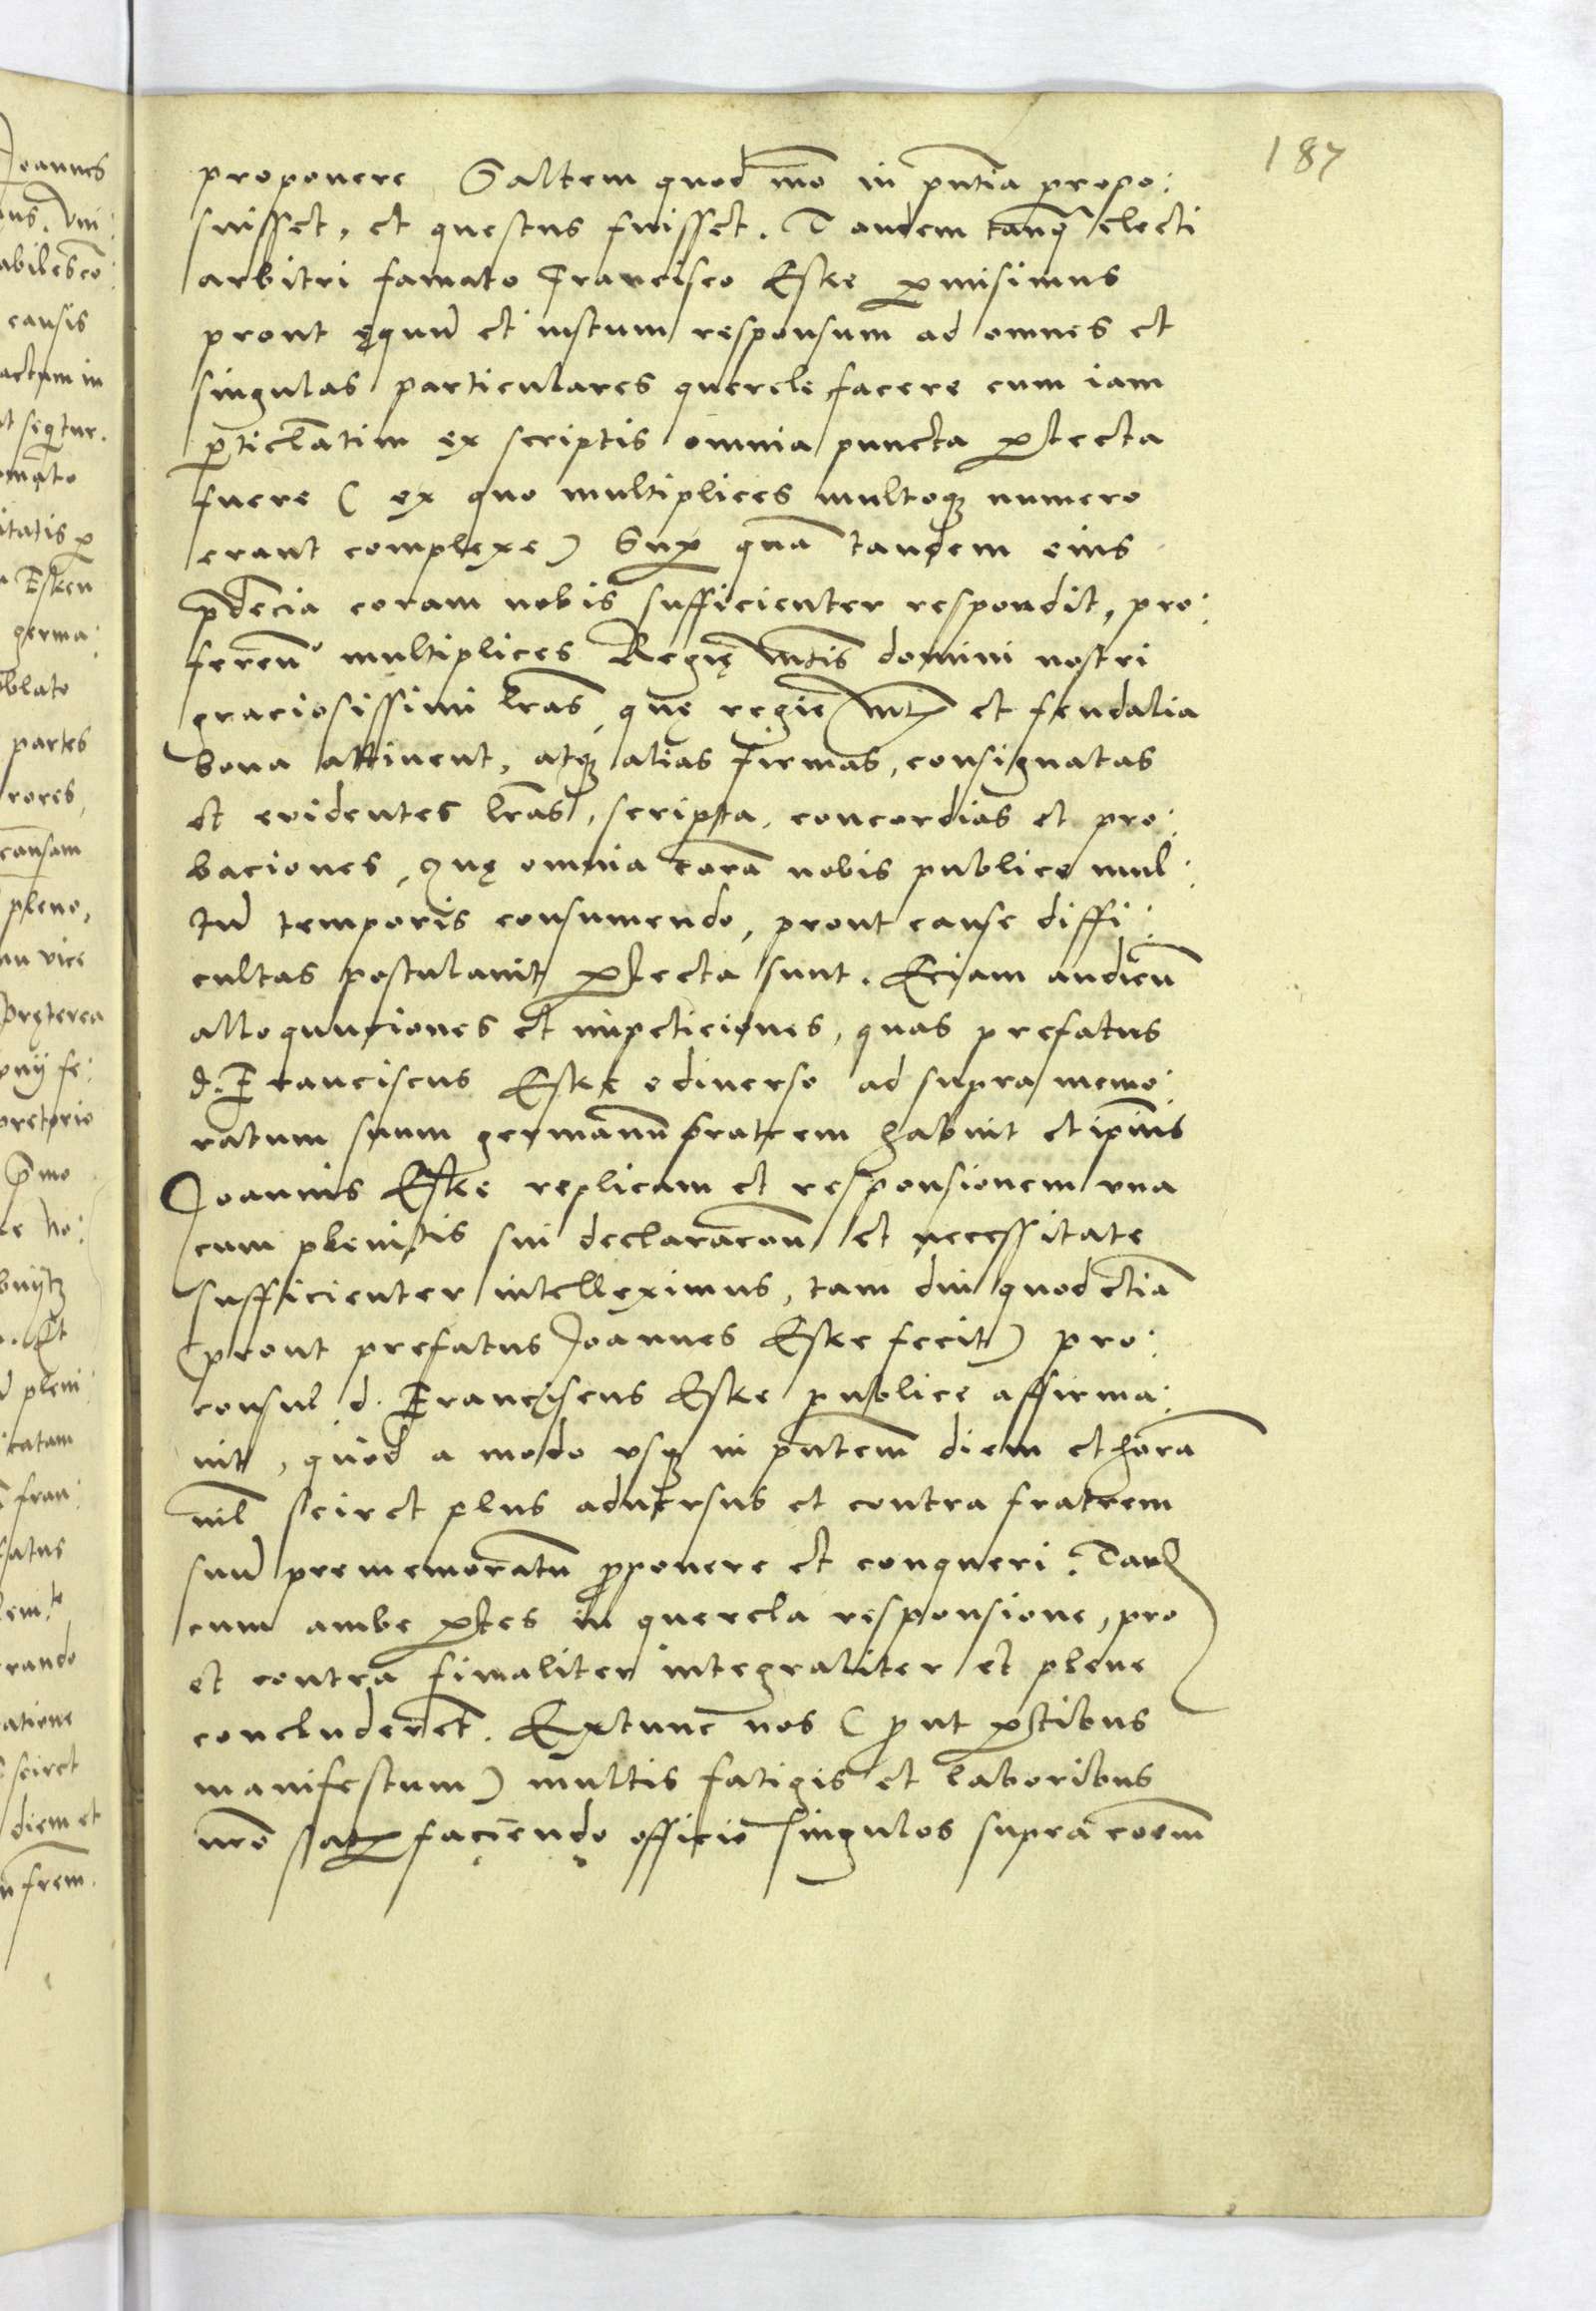 187
proponere Saltem quod mō in pn̄tia propo:
suisset, et questus fuisset. Tandem tanq̄ electi
arbitri famato Francisco Eske p̱misimus
prout ęquū et iustum responsum ad omnes et
singulas particulares querele facere cum iam
p̱ticl̄atim ex scriptis omnia puncta p̱lecta
fuere (ex quo multiplices multoq₃ numero
erant complexe) Sup̱ quā tandem eius
p̄decia coram nobis sufficienter respondit, pro:
ferēn̄ multiplices Regię Mt̄is domini nostri
graciosissimi l̄ras, quę regie Mt̄ꝭ et feudalia
bona attinent, atq₃ alias firmas, consignatas
et euidentes l̄ras, scripta, concordias et pro:
baciones, Quę omnia corā nobis publice mul:
tū temporis consumendo, prout cause diffi:
cultas postulauit p̱lecta sunt. Eciam audien̄
alloquuciones et impeticiones, quas prefatus
d. Franciscus Eske ediuerso ad supra memo:
ratum suum germanū fratrem habuit et ipīus
Joannis Eske replicam et responsionem vna
cum plenistis sui declaracōn̄ et necessitate
sufficienter intelleximus, tam diu quod etiā
(prout prefatus Joannes Eske fecit) pro:
consul d. Franciscus Eske publice affirma:
uit, quod a modo vsq₃ in pn̄tem diem et horā
nil̄ sciret plus aduersus et contra fratrem
suū prememoratū ꝓponere et conqueri. Tand̄
cum ambe p̱tes in querela responsione, pro
et contra finaliter integraliter et plene
concluderēt. Extunc nos (ꝓut p̱tibus
manifestum) multis fatigis et laboribus
nr̄o satꝭfaciendo officio singulos supra eoem̄